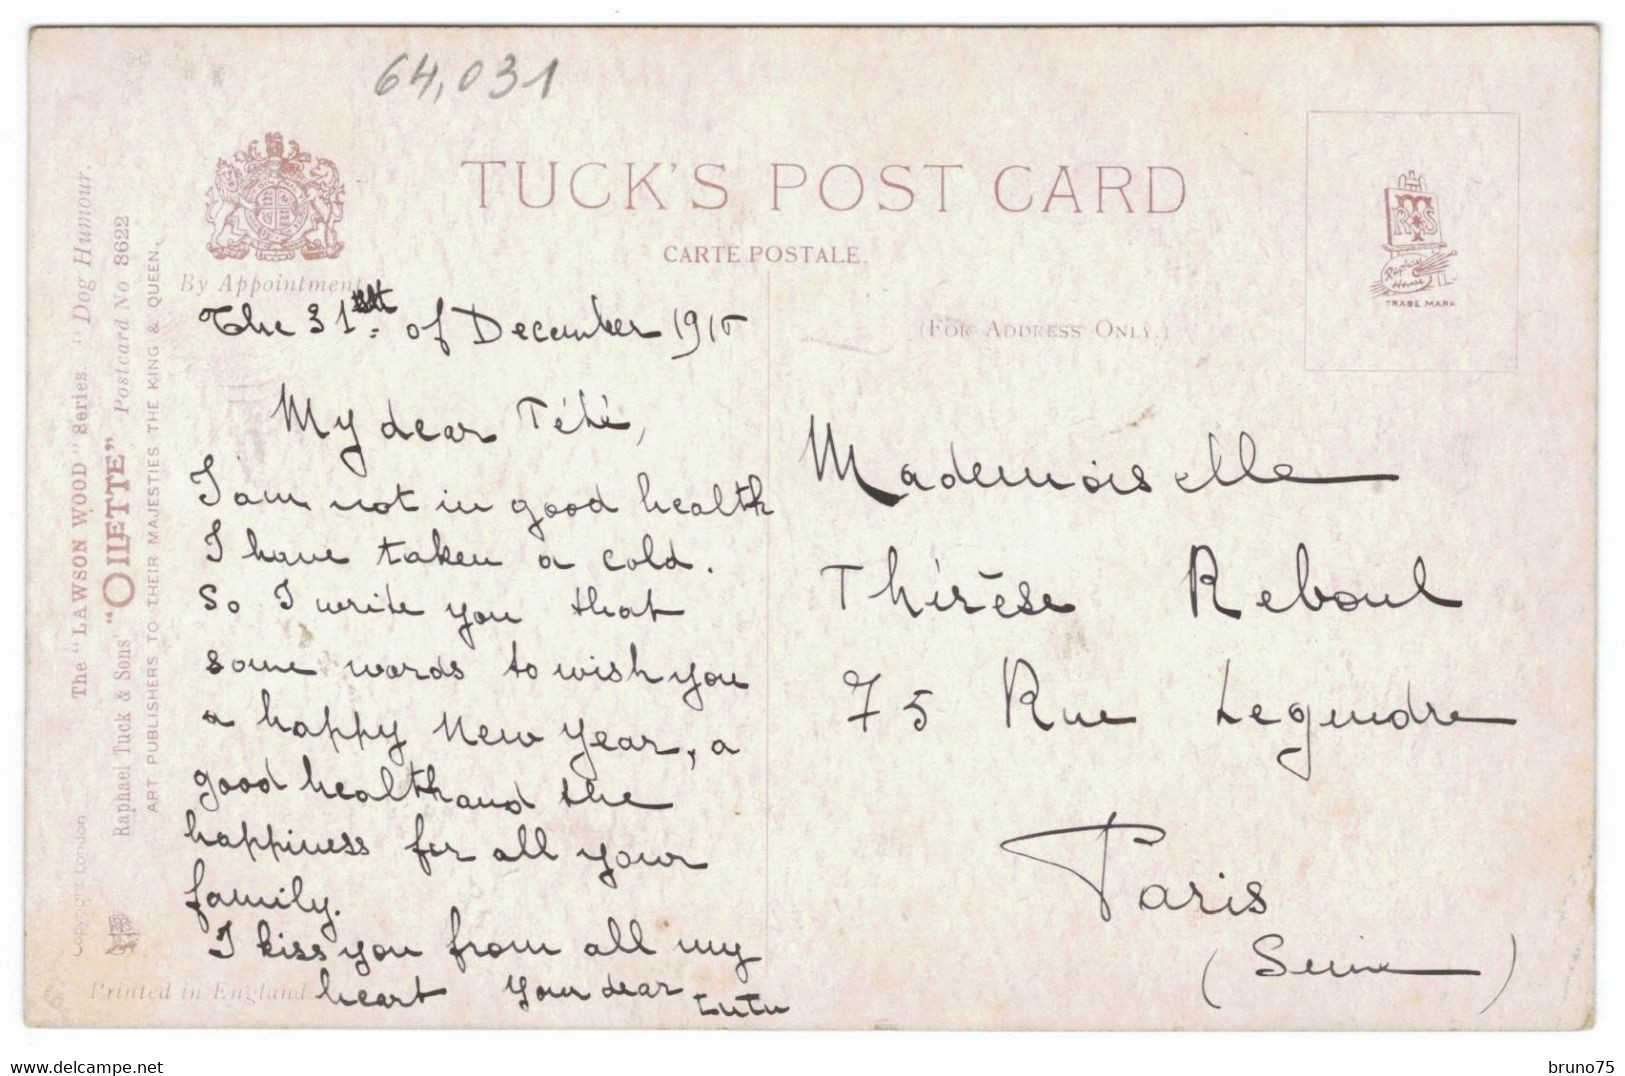 64,031
TUCK'S POST CARD
CARTE POSTALE.
By Appointment
(FOR ADDRESS ONLY.)
RTS
Raphael House
TRADE MARK
The "LAWSON WOOD" Series. "Dog Humour.
Raphael Tuck & Sons "OILETTE" Postcard No 8622
ART PUBLISHERS TO THEIR MAJESTIES THE KING & QUEEN.
Copyright London
Printed in England
The 31st of December
My dear
I am not in good health
I have taken a cold.
So I write you that
some words to wish you
a happy New Year, a
good health and the
happiness for all your
family.
I kiss you from all my
heart your dear
tutu
Mademoiselle
Thérèse Reboul
75 Rue Legendre
Paris
(Seine)
delcampe.net
bruno75